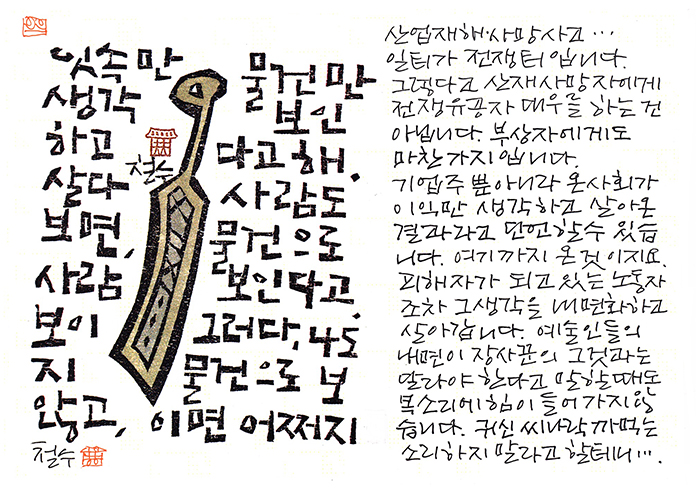 잇속만
생각
하고
살다
보면,
사람
보이
지
않고,
물건만
보인
다고 해.
사람도
물건으로
보인다고.
그러다, 너도
물건으로 보
이면 어쩌지
철수
철수
산업재해·사망사고 …
일터가 전쟁터입니다.
그렇다고 산재사망자에게
전쟁유공자 대우를 하는 건
아닙니다. 부상자에게도
마찬가지입니다.
기업주 뿐아니라 온사회가
이익만 생각하고 살아온
결과라고 단언할수 있습
니다. 여기까지 온것이지요.
피해자가 되고 있는 노동자
조차 그생각을 내면화하고
살아갑니다. 예술인들의
내면이 장사꾼의 그것과는
달라야 한다고 말할때도
목소리에 힘이 들어가지 않
습니다. 귀신 씨나락 까먹는
소리하지 말라고 할테니….